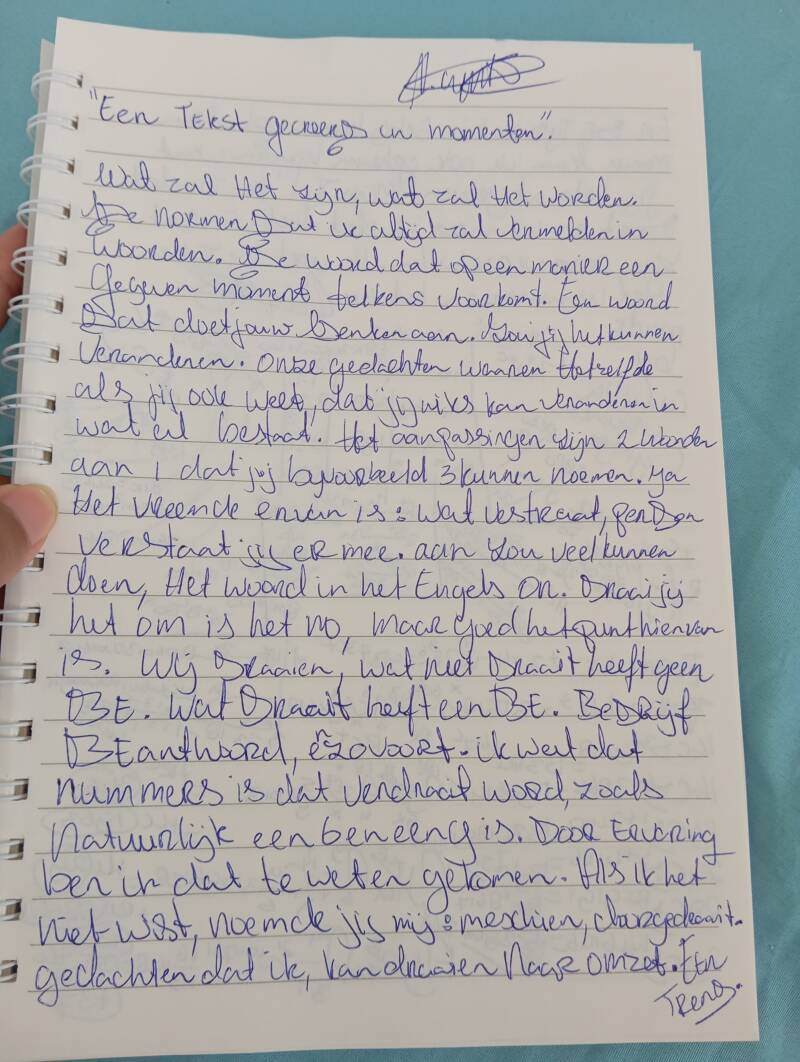 "Een Tekst gecreerd in momenten".
Wat zal Het zijn, wat zal Het worden.
De normen Dat ik altijd zal vermelden in
woorden. De woord dat op een manier een
Gegeven moment telkens voorkomt. Een woord
Dat doet jouw Denken aan. Zou jij het kunnen
Veranderen. Onze gedachten waaren Hetzelfde
als jij ook weet, dat jij niks kan veranderen in
wat al bestaat. Het aanpassingen zijn 2 woorden
aan 1 dat jij bijvoorbeeld 3 kunnen noemen. Ja
Het vreemde ervan is: wat verstraat,
verstaat jij er mee. aan zou veel kunnen
doen, Het woord in het Engels On. Draai jij
het om is het no, maar goed het punt hiervan
is. Wij Draaien, wat niet Draait heeft geen
BE. Wat Draait heeft een BE. BeDRijf
BEantwoord, enzovoort. ik weet dat
nummers is dat verdraait word, zoals
Natuurlijk een beneeng is. Door Ervaring
ben ik dat te weten gekomen. Als ik het
niet wist, noemde jij mij: meschien, doorgedraait.
gedachten dat ik, kan draaien Naar omzet. Een
Trend.